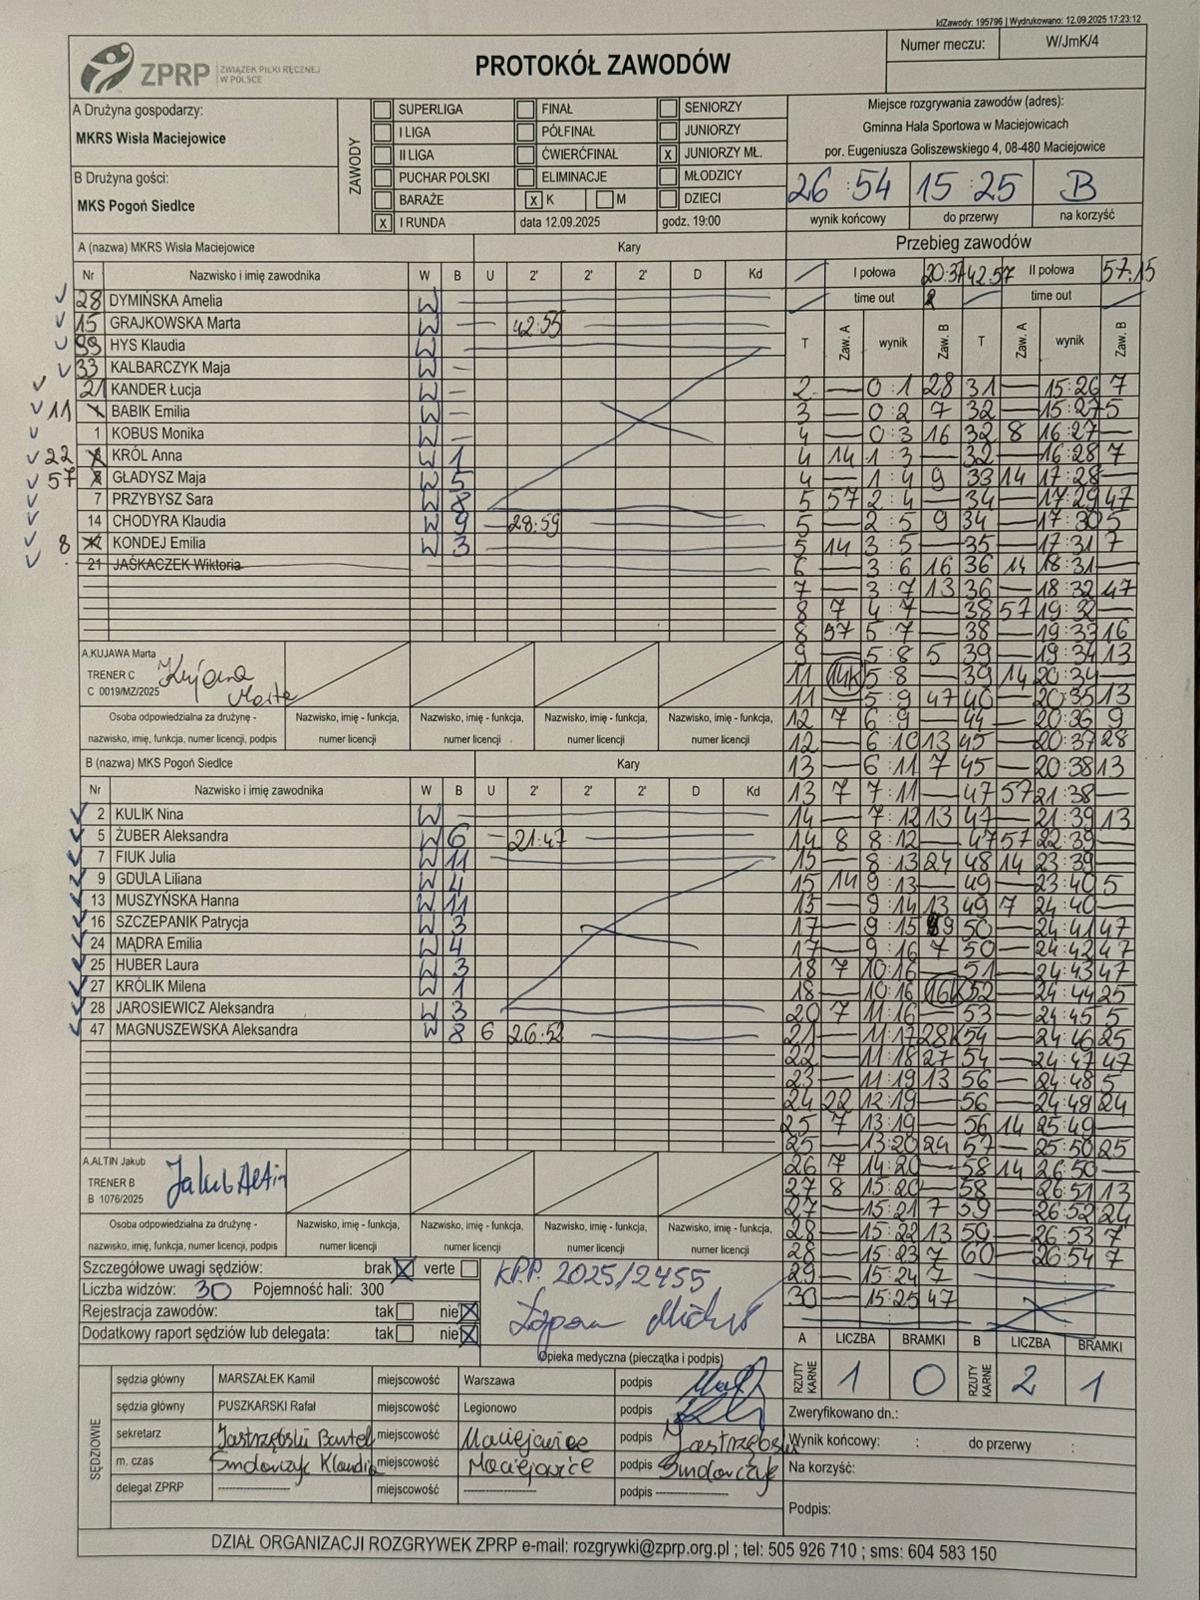 IdZawody: 195796 | Wydrukowano: 12.09.2025 17:23:12
ZPRP ZWIĄZEK PIŁKI RĘCZNEJ W POLSCE
PROTOKÓŁ ZAWODÓW
Numer meczu: W/JmK/4
A Drużyna gospodarzy:
MKRS Wisła Maciejowice
B Drużyna gości:
MKS Pogoń Siedlce
ZAWODY
SUPERLIGA FINAŁ SENIORZY
I LIGA PÓŁFINAŁ JUNIORZY
II LIGA ĆWIERĆFINAŁ X JUNIORZY MŁ.
PUCHAR POLSKI ELIMINACJE MŁODZICY
BARAŻE X K M DZIECI
X I RUNDA data 12.09.2025 godz. 19:00
Miejsce rozgrywania zawodów (adres):
Gminna Hala Sportowa w Maciejowicach
por. Eugeniusza Goliszewskiego 4, 08-480 Maciejowice
26:54 15:25 B
wynik końcowy do przerwy na korzyść
A (nazwa) MKRS Wisła Maciejowice Kary
Nr Nazwisko i imię zawodnika W B U 2' 2' 2' D Kd
28 DYMIŃSKA Amelia W
15 GRAJKOWSKA Marta W 42:55
99 HYS Klaudia W
33 KALBARCZYK Maja W
21 KANDER Łucja W
11 BABIK Emilia W
1 KOBUS Monika W
22 KRÓL Anna W 1
57 GŁADYSZ Maja W 5
7 PRZYBYSZ Sara W 8
14 CHODYRA Klaudia W 9 28:59
8 KONDEJ Emilia W 3
21 JAŚKACZEK Wiktoria
A.KUJAWA Marta
TRENER C
C 0019/MZ/2025
Kujawa Marta
Osoba odpowiedzialna za drużynę - Nazwisko, imię - funkcja, Nazwisko, imię - funkcja, Nazwisko, imię - funkcja, Nazwisko, imię - funkcja,
nazwisko, imię, funkcja, numer licencji, podpis numer licencji numer licencji numer licencji numer licencji
B (nazwa) MKS Pogoń Siedlce Kary
Nr Nazwisko i imię zawodnika W B U 2' 2' 2' D Kd
2 KULIK Nina W
5 ŻUBER Aleksandra W 6 21:47
7 FIUK Julia W 11
9 GDULA Liliana W 4
13 MUSZYŃSKA Hanna W 11
16 SZCZEPANIK Patrycja W 3
24 MĄDRA Emilia W 4
25 HUBER Laura W 3
27 KRÓLIK Milena W 1
28 JAROSIEWICZ Aleksandra W 3
47 MAGNUSZEWSKA Aleksandra W 8 6 26:52
A.ALTIN Jakub
TRENER B
B 1076/2025
Jakub Altin
Osoba odpowiedzialna za drużynę - Nazwisko, imię - funkcja, Nazwisko, imię - funkcja, Nazwisko, imię - funkcja, Nazwisko, imię - funkcja,
nazwisko, imię, funkcja, numer licencji, podpis numer licencji numer licencji numer licencji numer licencji
Szczegółowe uwagi sędziów: brak X verte
Liczba widzów: 30 Pojemność hali: 300
Rejestracja zawodów: tak nie X
Dodatkowy raport sędziów lub delegata: tak nie X
KPP. 2025/2455
Opieka medyczna (pieczątka i podpis)
SĘDZIOWIE
sędzia główny MARSZAŁEK Kamil miejscowość Warszawa podpis
sędzia główny PUSZKARSKI Rafał miejscowość Legionowo podpis
sekretarz Jastrzębski Bartek miejscowość Maciejowice podpis Jastrzębski
m. czas Smolarczyk Klaudia miejscowość Maciejowice podpis Smolarczyk
delegat ZPRP miejscowość podpis
Przebieg zawodów
I połowa 20:37 42:57 II połowa 57:15
time out time out
T Zaw. A wynik Zaw. B T Zaw. A wynik Zaw. B
2 — 0:1 28 31 — 15:26 7
3 — 0:2 7 32 — 15:27 5
4 — 0:3 16 32 8 16:27 —
4 14 1:3 — 32 — 16:28 7
4 — 1:4 9 33 14 17:28 —
5 57 2:4 — 34 — 17:29 47
5 — 2:5 9 34 — 17:30 5
5 14 3:5 — 35 — 17:31 7
6 — 3:6 16 36 14 18:31 —
7 — 3:7 13 36 — 18:32 47
8 7 4:7 — 38 57 19:32 —
8 57 5:7 — 38 — 19:33 16
9 — 5:8 5 39 — 19:34 13
11 14K 5:8 — 39 14 20:34 —
11 — 5:9 47 40 — 20:35 13
12 7 6:9 — 44 — 20:36 9
12 — 6:10 13 45 — 20:37 28
13 — 6:11 7 45 — 20:38 13
13 7 7:11 — 47 57 21:38 —
14 — 7:12 13 47 — 21:39 13
14 8 8:12 — 47 57 22:39 —
15 — 8:13 24 48 14 23:39 —
15 14 9:13 — 49 — 23:40 5
15 — 9:14 13 49 7 24:40 —
17 — 9:15 9 50 — 24:41 47
17 — 9:16 7 50 — 24:42 47
18 7 10:16 — 51 — 24:43 47
18 — 10:16 16K 52 — 24:44 25
20 7 11:16 — 53 — 24:45 5
21 — 11:17 28K 54 — 24:46 25
22 — 11:18 27 54 — 24:47 47
23 — 11:19 13 56 — 24:48 5
24 22 12:19 — 56 — 24:49 24
25 7 13:19 — 56 14 25:49 —
25 — 13:20 24 57 — 25:50 25
26 7 14:20 — 58 14 26:50 —
27 8 15:20 — 58 — 26:51 13
27 — 15:21 7 59 — 26:52 24
28 — 15:22 13 59 — 26:53 7
28 — 15:23 7 60 — 26:54 7
29 — 15:24 7
30 — 15:25 47
A LICZBA BRAMKI B LICZBA BRAMKI
RZUTY KARNE 1 0 RZUTY KARNE 2 1
Zweryfikowano dn.:
Wynik końcowy: : do przerwy :
Na korzyść:
Podpis:
DZIAŁ ORGANIZACJI ROZGRYWEK ZPRP e-mail: rozgrywki@zprp.org.pl ; tel: 505 926 710 ; sms: 604 583 150